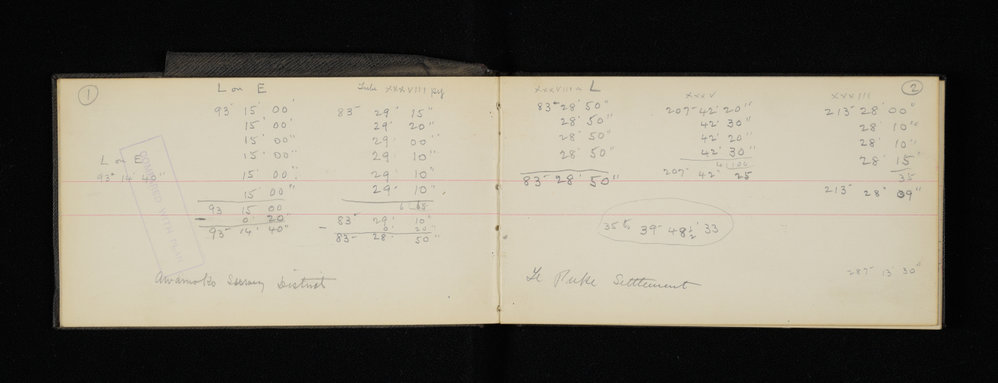 1
L on E
93° 15' 00'
15' 00'
15' 00"
15' 00"
15' 00"
15' 00"
93 15 00
- 0' 20"
93° 14' 40"
L on E
93° 14' 40"
COMPARED WITH PLAN
XXXVIII
83° 29' 15"
29' 20"
29' 00"
29' 10"
29' 10"
29' 10"
6 65
83° 29' 10"
- 0' 20"
83° 28' 50"
Awamoko Survey District
2
XXXVIIIa L
83° 28' 50"
28' 50"
28' 50"
28' 50"
83° 28' 50"
XXXV
207° 42' 20"
42' 30"
42' 20"
42' 30"
4 100
207° 42' 25
XXXIII
213° 28' 00"
28' 10"
28' 10"
28' 15"
35
213° 28' 09"
39 48½ 33
287° 13' 30"
Te Puke Settlement